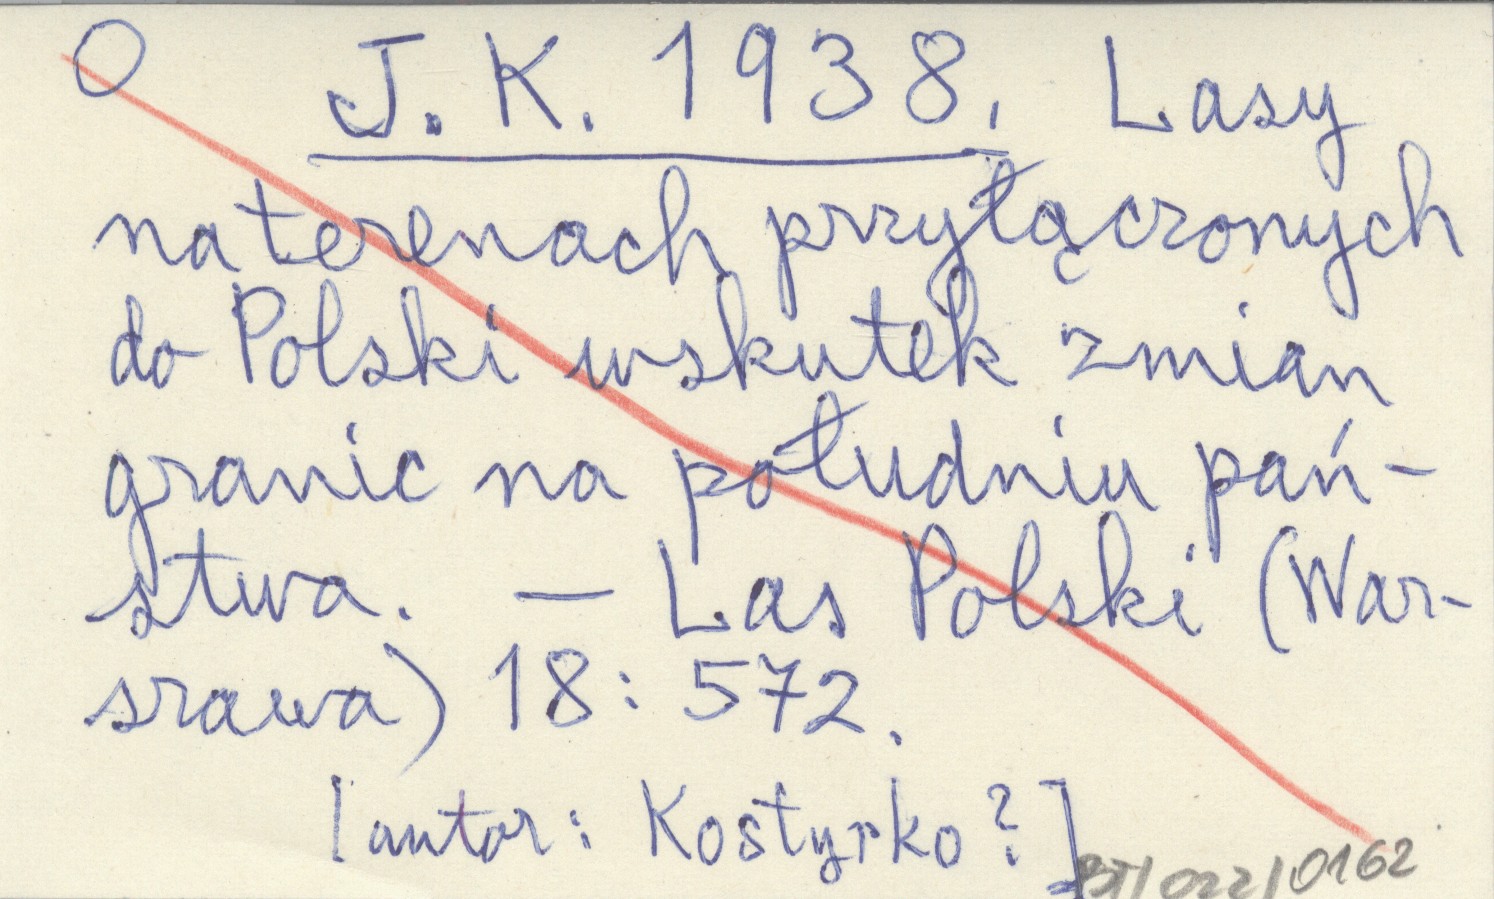 O J. K. 1938. Lasy
na terenach przyłączonych
do Polski wskutek zmian
granic na południu pań-
stwa. — Las Polski (War-
szawa) 18: 572.
[autor: Kostyrko?]
BT/022/0162